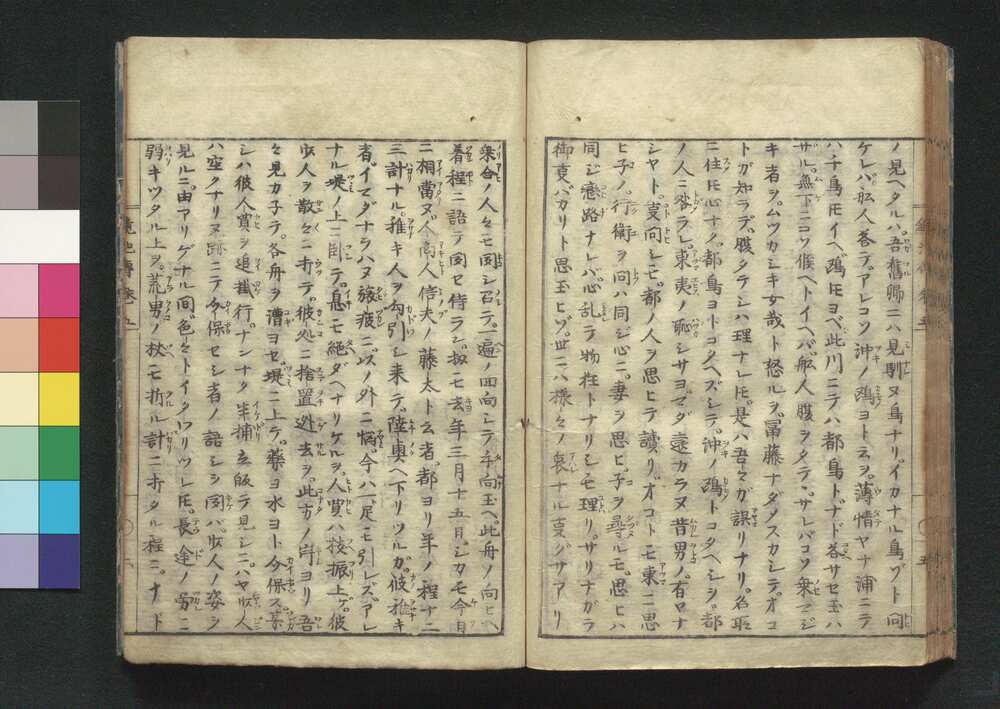 ノ見ヘタルハ。吾舊歸ニハ見馴ヌ鳥ナリ。イカナル鳥ゾト問
ケレバ。舩人答テ。アレコソ沖ノ鴎ヨト云ヲ。薄情ヤナ浦ニテ
ハ千鳥トモイヘ鴎トモヨベ。此川ニテハ都鳥ト。ナド答サセ玉ハ
ザル。無下ニコソ候ヘトイヘバ。舩人腹ヲタテ。サレバコソ乗マジ
キ者ヲ。ムツカシキ女哉ト怒ルヲ。冨藤ナダメスカシテ。オコ
トガ知ラデ。腹タテシハ理ナレ𪜈。是ハ吾々ガ誤リナリ。名取
ニ住𪜈心ナク。都鳥ヨトコタヘズシテ。沖ノ鴎トコタヘシヲ。都
ノ人ニ咎ラレ。東夷ノ恥シサヨ。マダ遠カラヌ昔男ノ。有ロナ
シヤト。莫問シモ。都ノ人ヲ思ヒテ讀リ。オコトモ東ニ思
ヒ子ノ。行衛ヲ問ハ同ジ心ニ。妻ヲ思ヒ。子ヲ尋ルモ。思ヒハ
同ジ戀路ナレバ。心乱ラ物狂トナリシモ理リ。サリナガラ
御莫バカリト思玉ヒゾ。世ニハ様々ノ哀ナル莫ゾサアリ
乗合ノ人々モ同シ召テ。一遍ノ回向シテ手向玉ヘ。此舟ノ向ヒヘ
着程ニ語テ同セ侍ラン。扨モ去年三月十五日。シカモ今日
ニ相當ヌ。人商人信夫ノ藤太ト云者。都ヨリ年ノ程十二
三計ナル。稚キ人ヲ勾引シ来テ。陸奥ヘ下リツルガ。彼稚キ
者。イマダナラハヌ旅疲ニ。以ノ外ニ悩。今ハ一足モ引レズ。アレ
ナル堤ノ上ニ臥テ。息モ絶ダヘナリケルヲ。人買ハ杖振上ゲ。彼
少人ヲ散々ニ打テ。彼処ニ捨置逃去ヲ。此方ノ岸ヨリ吾
々見カ子テ。各舟ヲ漕ヨセ。堤ニ上テ。藥ヨ水ヨト介保ス。
シハ彼人買ヲ追掛行。ナンナク半捕立飯ラ見シニ。ハヤ少人
ハ空クナリヌ。跡ニテ介保セシ者ノ語シヲ同バ。少人ノ姿ヲ
見ルニ。由アリゲナル同。色々トイタワリツレ𪜈。長途ノ労ニ
弱キツタル上ヲ。荒男ノ杖モ折ル計ニ打タル程ニ。ナド